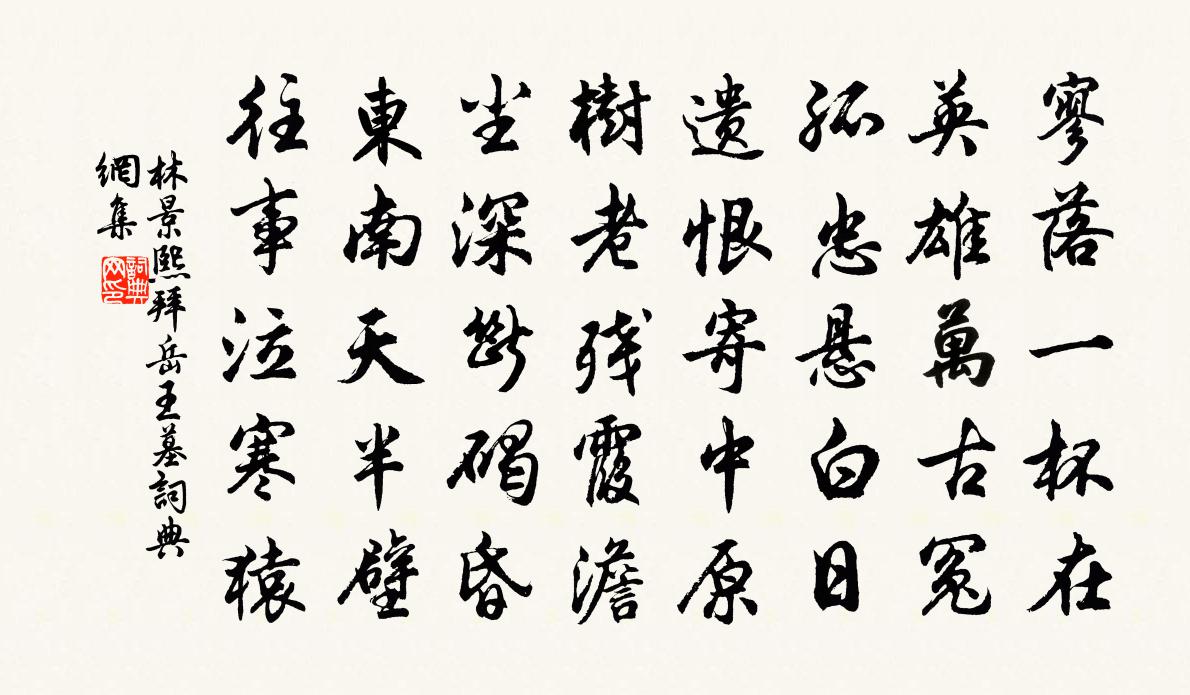 寥落一杯在
英雄萬古冤
孤忠悬白日
遗恨寄中原
樹老残霞澹
尘深断碣昏
東南天半壁
往事泣寒猿
林景熙拜岳王墓詞典
網集
詞典
网印